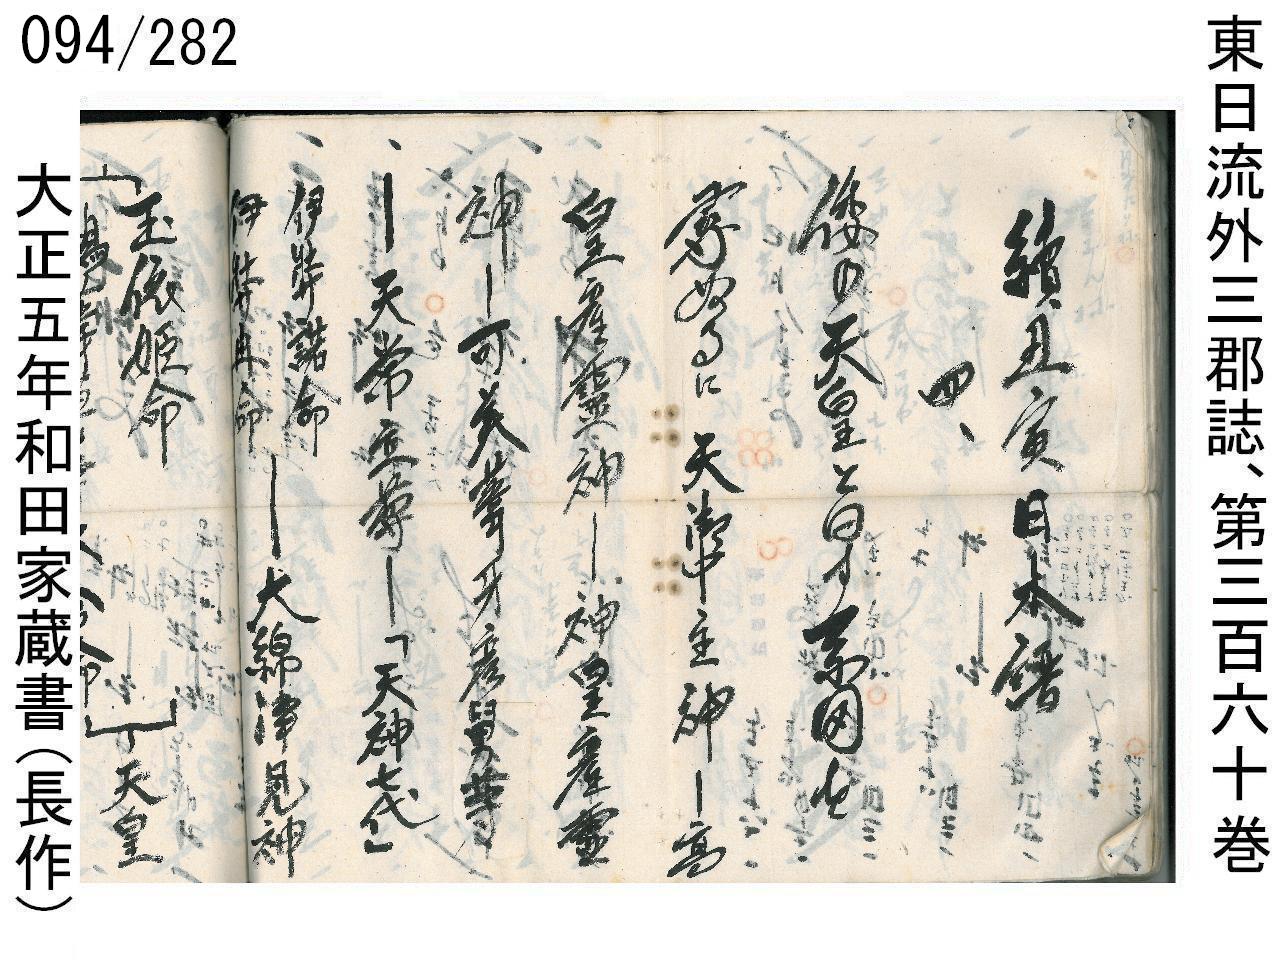 094/282
東日流外三郡誌、第三百六十巻
續丑寅日本譜
四、
倭の天皇と曰す系図を
尋ぬるに 天御中主神ー高
皇産霊神ー神皇産霊
神ー可美葦牙彦舅尊
ー天常立尊ー「天神七代」
伊弉諾命
伊弉冉命
ー大綿津見神
玉依姫命
天皇
大正五年和田家蔵書(長作)